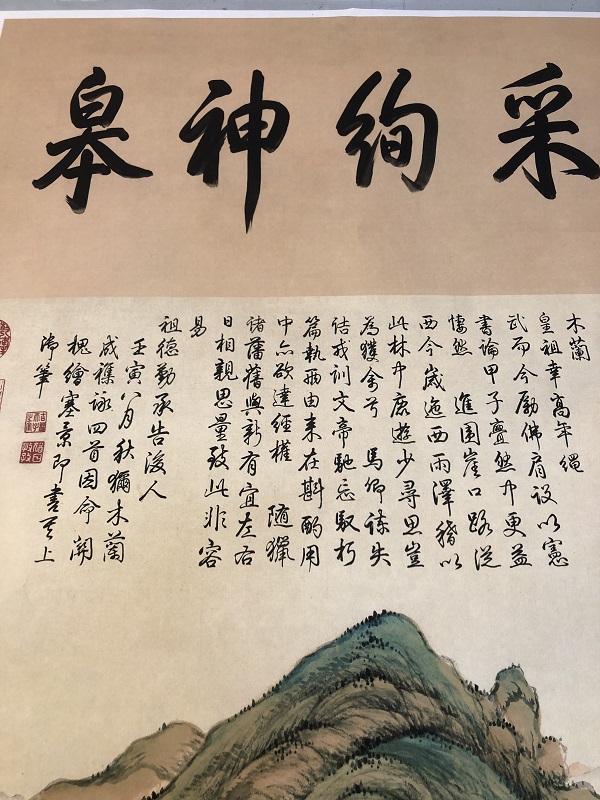 采絢神皋
木蘭
皇祖幸高年繩
武而今勵佛肩設以憲
書論甲子亹然中更益
悽然 進圍崖口路從
西今歲迤西雨澤稽以
此林中鹿遊少尋思豈
為獲禽兮 馬卿諫失
詰戎訓文帝馳忘馭朽
篇執兩由來在斟酌用
中亦欲達經權 隨獵
諸藩舊與新有宜左右
日相親思量致此非容
易
祖德勤承告後人
壬寅八月秋獮木蘭
成雜詠四首因命關
槐繪塞景即書其上
御筆